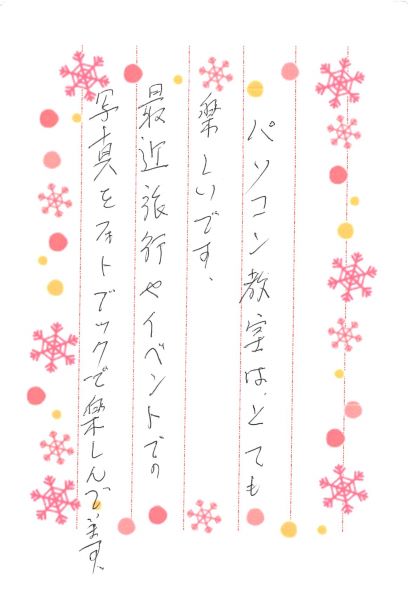 パソコン教室は、とても
楽しいです、
最近旅行やイベントでの
写真をフォトブックで楽しんでいます、